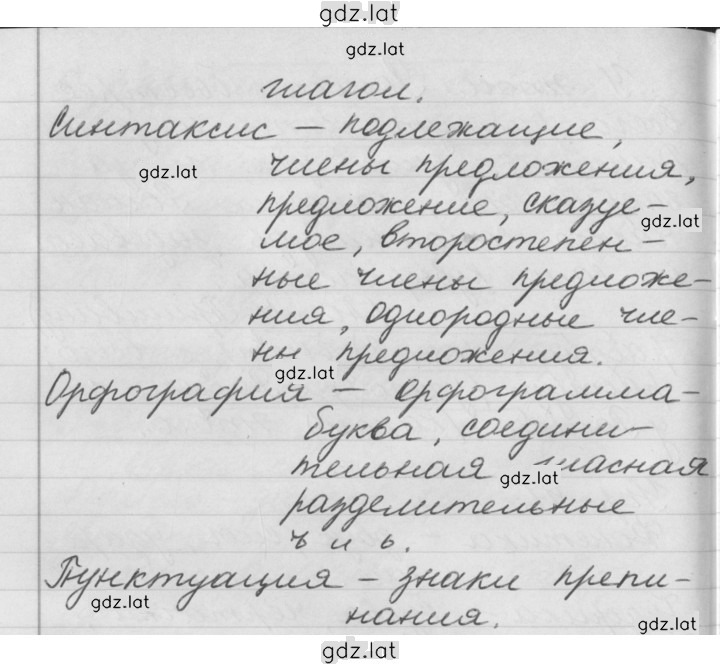 gdz.lat
gdz.lat
глагол.
Синтаксис – подлежащие,
члены предложения,
gdz.lat
предложение, сказуе-
gdz.lat
мое, второстепен-
ные члены предложе-
ния, однородные чле-
ны предложения.
gdz.lat
Орфография – орфограмма-
буква, соедини-
тельная гласная
gdz.lat
разделительные
ъ и ь.
Пунктуация – знаки препи-
gdz.lat
нания.
gdz.lat
gdz.lat